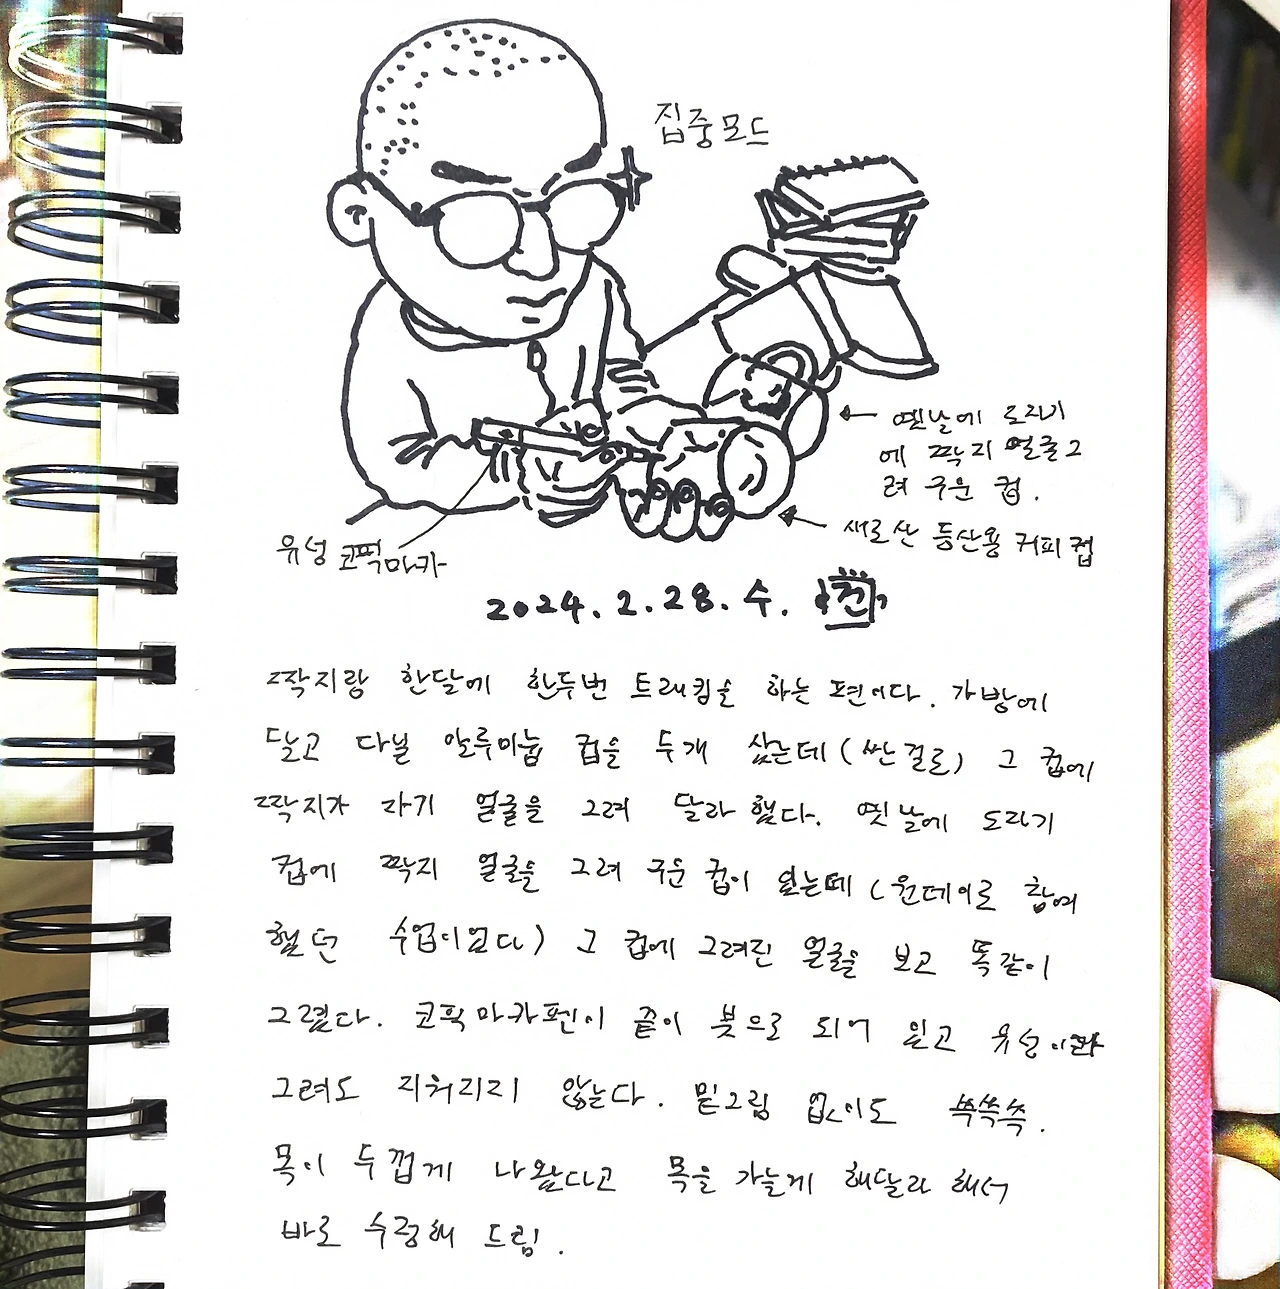 집중모드
옛날에 도자기
에 짝지 얼굴그
려 구운 컵.
새로산 등산용 커피컵
유성 코픽마카
2024.2.28.수.
짝지랑 한달에 한두번 트래킹을 하는 편이다. 가방에
달고 다닐 알루미늄 컵을 두개 샀는데(싼걸로) 그 컵에
짝지가 자기 얼굴을 그려 달라 했다. 옛날에 도자기
컵에 짝지 얼굴을 그려 구운컵이 있는데(원데이로 참여
했던 수업이었다) 그 컵에 그려진 얼굴을 보고 똑같이
그렸다. 코픽마카펜이 끝이 붓으로 되어 있고 유성이라
그려도 지워지지 않는다. 밑그림 없이도 쓱쓱쓱.
목이 두껍게 나왔다고 목을 가늘게 해달라 해서
바로 수정해 드림.